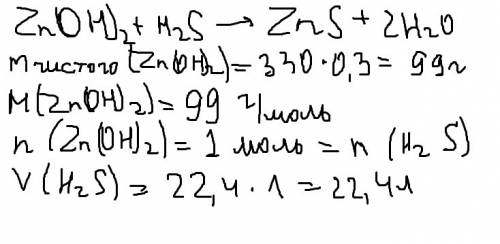 Zn(OH)2 + H2S → ZnS + 2H2O
m чистого (Zn(OH)2) = 330·0,3 = 99г
M(Zn(OH)2) = 99 г/моль
n (Zn(OH)2) = 1 моль = n (H2S)
V(H2S) = 22,4·1 = 22,4л